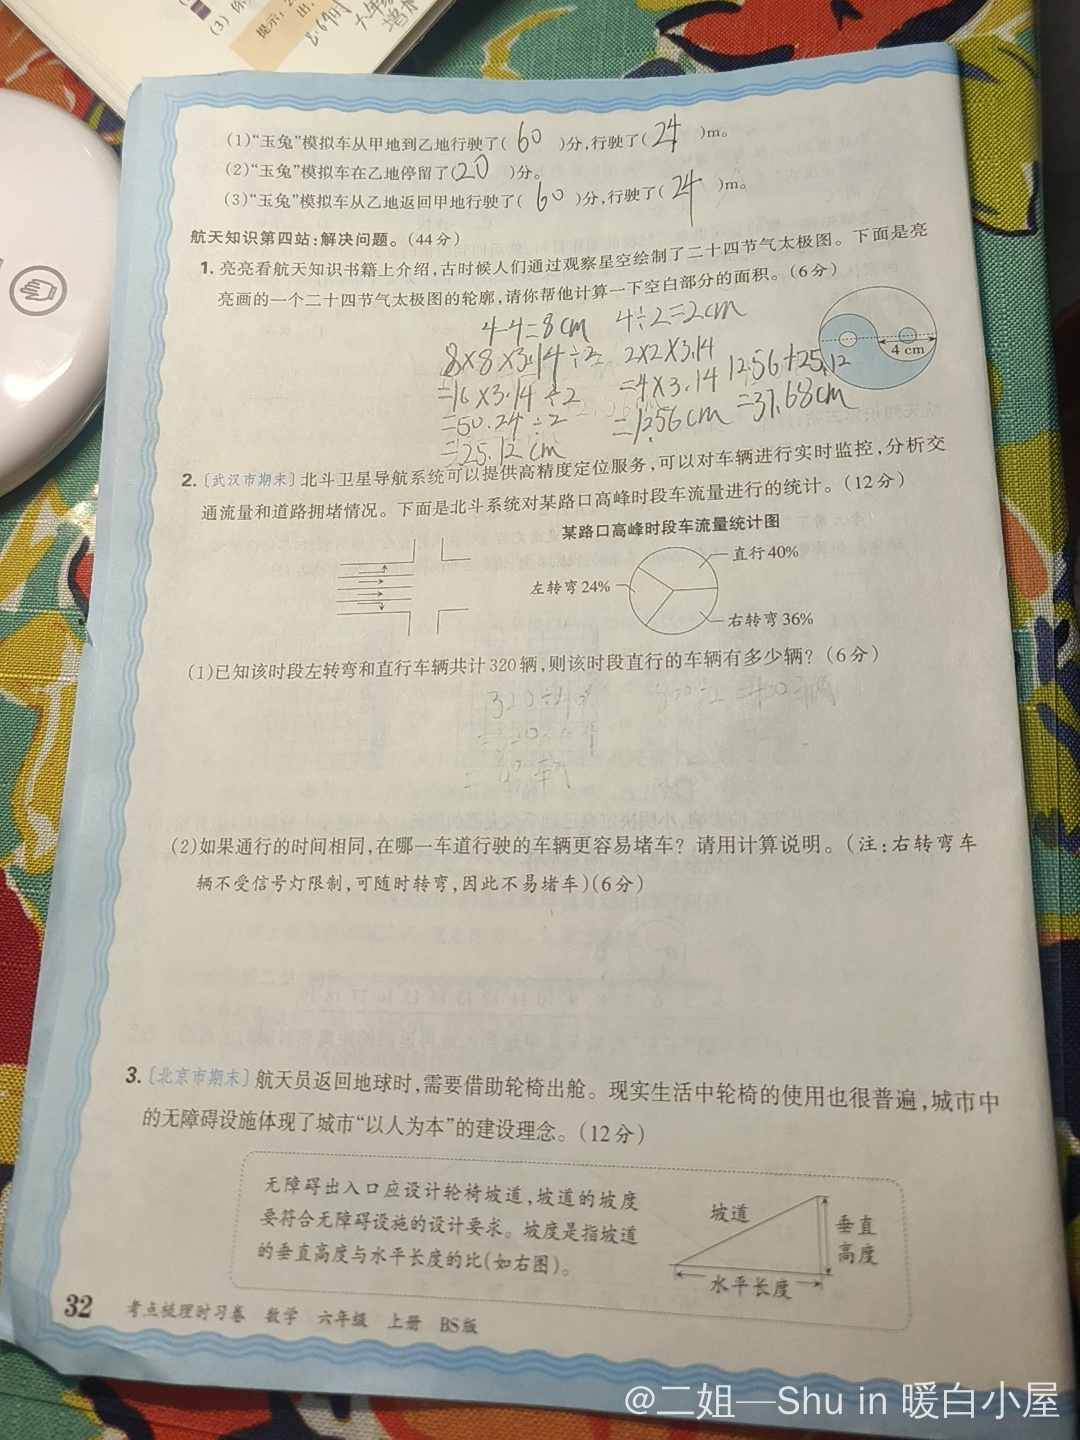 (3) 你
提示:2
出,
8.69时
六年级
(1)“玉兔”模拟车从甲地到乙地行驶了( 60 )分,行驶了( 24 )m。
(2)“玉兔”模拟车在乙地停留了( 20 )分。
(3)“玉兔”模拟车从乙地返回甲地行驶了( 60 )分,行驶了( 24 )m。
航天知识第四站:解决问题。(44分)
1. 亮亮看航天知识书籍上介绍,古时候人们通过观察星空绘制了二十四节气太极图。下面是亮
亮画的一个二十四节气太极图的轮廓,请你帮他计算一下空白部分的面积。(6分)
4 cm
4-4=8cm 4÷2=2cm
8×8×3.14÷2 2×2×3.14 12.56+25.12
=16×3.14÷2 =4×3.14 =37.68cm
=50.24÷2 =12.56cm
=25.12cm
2. [武汉市期末] 北斗卫星导航系统可以提供高精度定位服务,可以对车辆进行实时监控,分析交
通流量和道路拥堵情况。下面是北斗系统对某路口高峰时段车流量进行的统计。(12分)
某路口高峰时段车流量统计图
直行40%
左转弯24%
右转弯36%
(1)已知该时段左转弯和直行车辆共计320辆,则该时段直行的车辆有多少辆?(6分)
(2)如果通行的时间相同,在哪一车道行驶的车辆更容易堵车?请用计算说明。(注:右转弯车
辆不受信号灯限制,可随时转弯,因此不易堵车)(6分)
3. [北京市期末] 航天员返回地球时,需要借助轮椅出舱。现实生活中轮椅的使用也很普遍,城市中
的无障碍设施体现了城市“以人为本”的建设理念。(12分)
无障碍出入口应设计轮椅坡道,坡道的坡度
要符合无障碍设施的设计要求。坡度是指坡道
的垂直高度与水平长度的比(如右图)。
坡道
垂直
高度
水平长度
32 考点梳理时习卷 数学 六年级 上册 BS版
@二姐—Shu in 暖白小屋